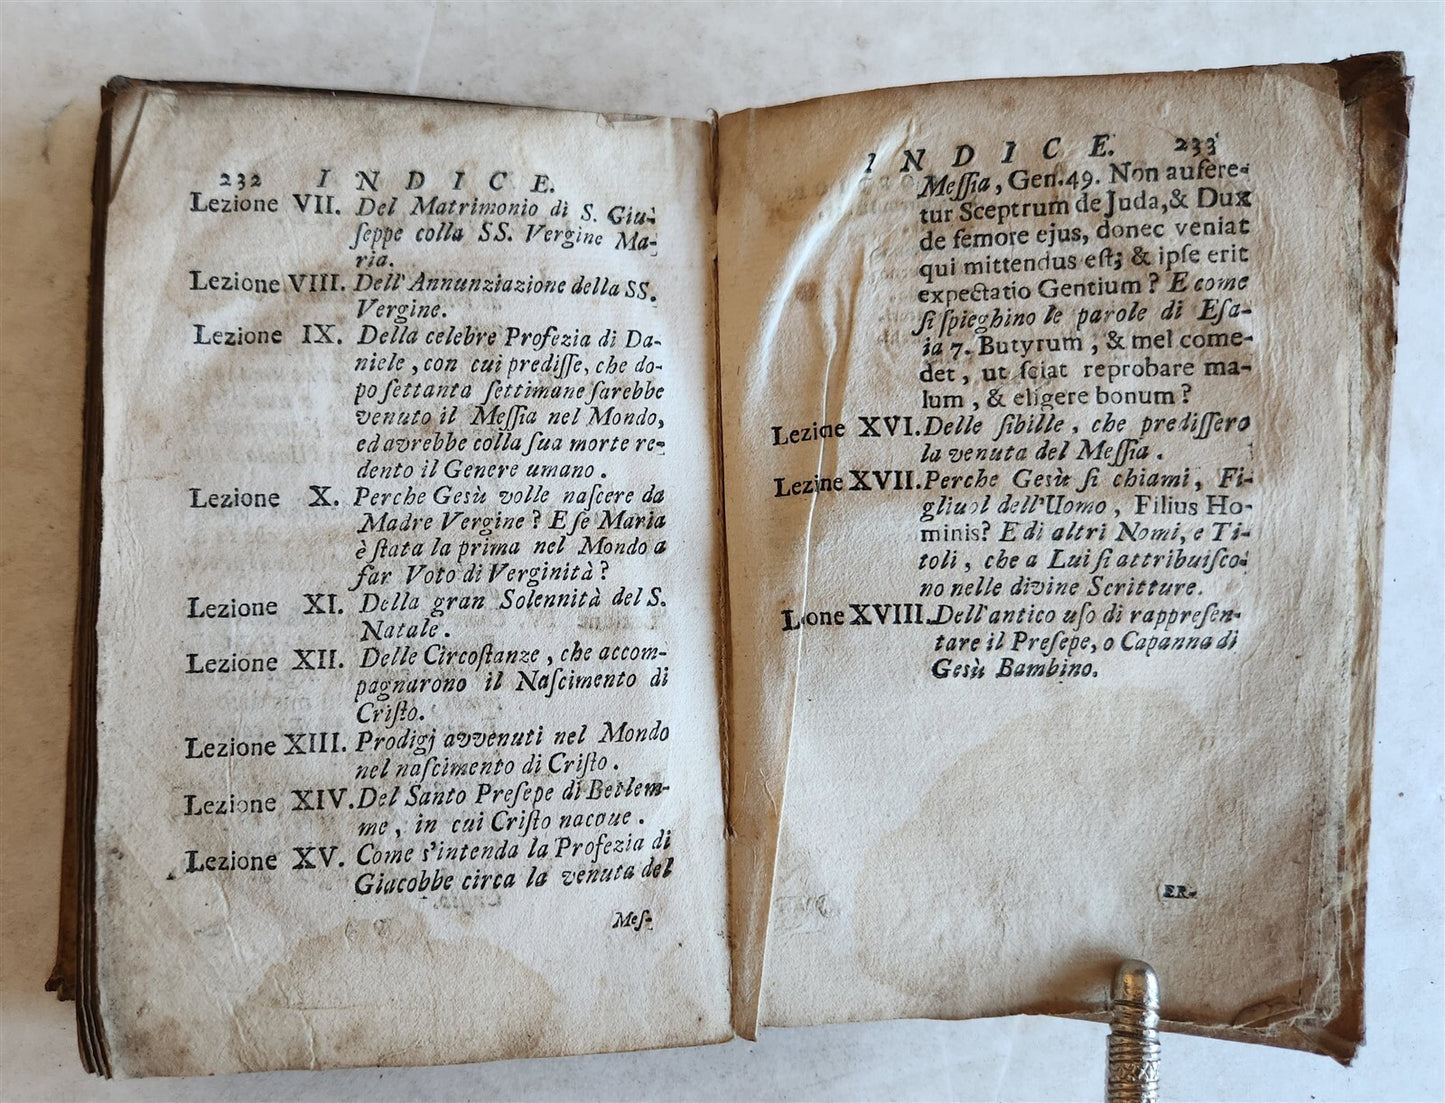 232 INDICE.
Lezione VII. Del Matrimonio di S. Giu-
ſeppe colla SS. Vergine Ma-
ria.
Lezione VIII. Dell'Annunziazione della SS.
Vergine.
Lezione IX. Della celebre Profezia di Da-
niele, con cui prediſſe, che do-
po ſettanta ſettimane ſarebbe
venuto il Meſſia nel Mondo,
ed avrebbe colla ſua morte re-
dento il Genere umano.
Lezione X. Perche Gesù volle naſcere da
Madre Vergine? E ſe Maria
è ſtata la prima nel Mondo a
far Voto di Verginità?
Lezione XI. Della gran Solennità del S.
Natale.
Lezione XII. Delle Circoſtanze, che accom-
pagnarono il Naſcimento di
Criſto.
Lezione XIII. Prodigj avvenuti nel Mondo
nel naſcimento di Criſto.
Lezione XIV. Del Santo Preſepe di Betlem-
me, in cui Criſto nacque.
Lezione XV. Come s'intenda la Profezia di
Giacobbe circa la venuta del
Meſ-
INDICE. 233
Meſſia, Gen.49. Non aufere-
tur Sceptrum de Juda, & Dux
de femore ejus, donec veniat
qui mittendus eſt; & ipſe erit
expectatio Gentium? E come
ſi ſpieghino le parole di Eſa-
ia 7. Butyrum, & mel come-
det, ut ſciat reprobare ma-
lum, & eligere bonum?
Lezione XVI. Delle ſibille, che prediſſero
la venuta del Meſſia.
Lezine XVII. Perche Gesù ſi chiami, Fi-
gliuol dell'Uomo, Filius Ho-
minis? E di altri Nomi, e Ti-
toli, che a Lui ſi attribuiſco-
no nelle divine Scritture.
L one XVIII. Dell'antico uſo di rappreſen-
tare il Preſepe, o Capanna di
Gesù Bambino.
ER-